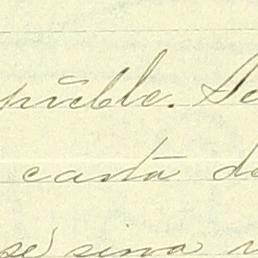 pueble. Se
carta de
se sirva